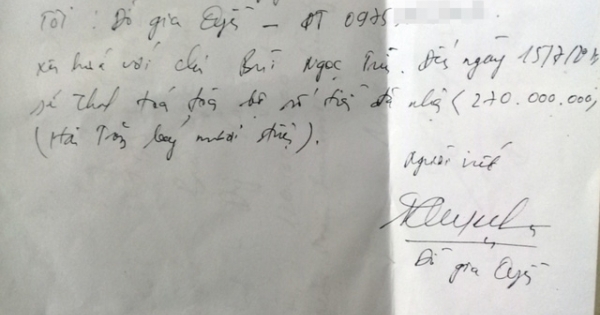 Tôi : Đỗ gia Quý – ĐT 0975
xin hứa với chị Bùi Ngọc. Đến ngày 15/7/
sẽ thanh toán toàn bộ số tiền đã nhận (270.000.000,
(Hai Trăm bảy mươi triệu).
Người viết
Đỗ gia Quý